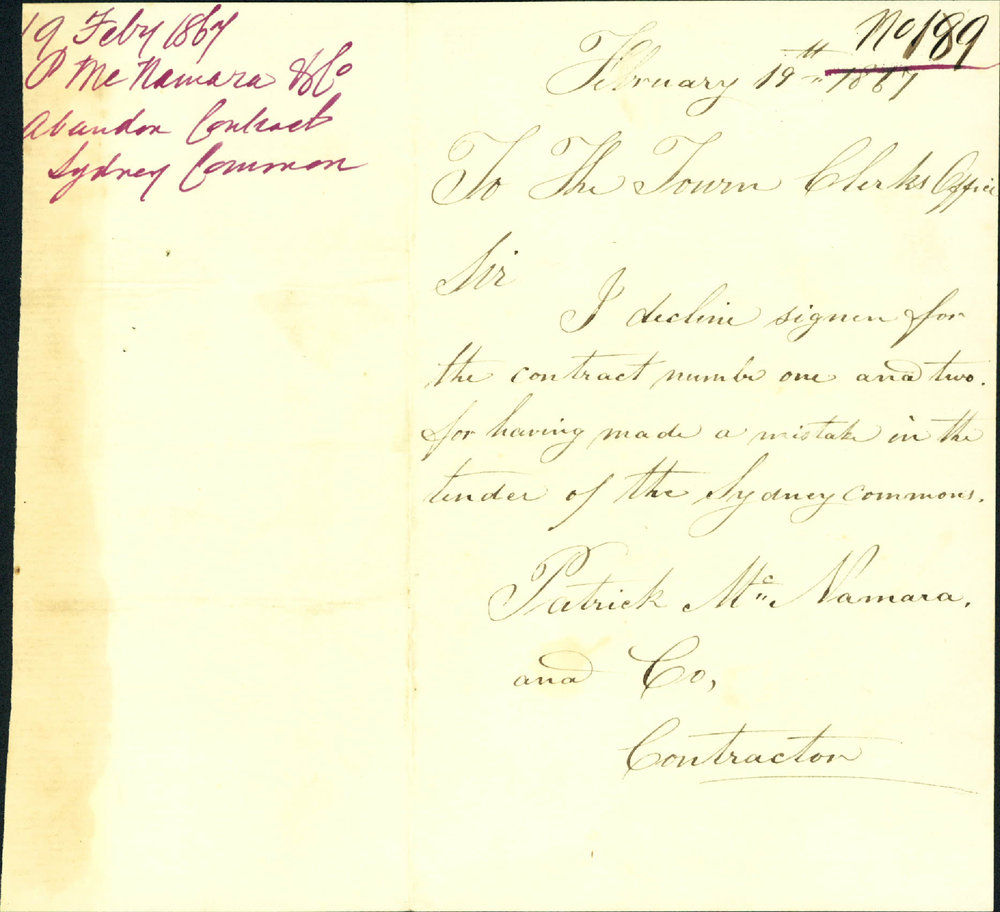 19 Feby 1867
P McNamara & Co
Abandon Contract
Sydney Common
No 189
February 19th 1867
To The Town Clerks Office
Sir
I decline signen for
the contract numbr one and two.
for having made a mistake in the
tender of the Sydney commons.
Patrick Mc Namara.
and Co,
Contractor